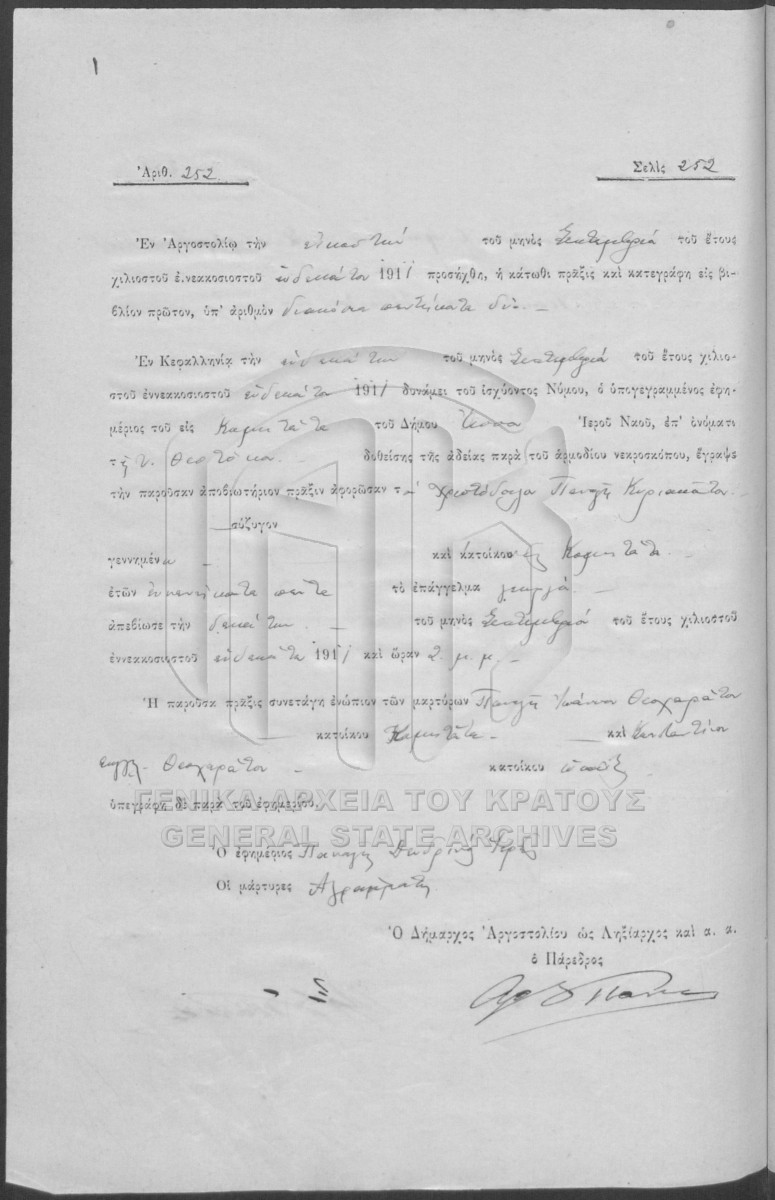 Ἀριθ. 252
Σελὶς 252
Ἐν Ἀργοστολίῳ τὴν εἰκοστὴν τοῦ μηνὸς Σεπτεμβρίου τοῦ ἔτους
χιλιοστοῦ ἐννεακοσιοστοῦ ἑνδεκάτου 1911 προσήχθη, ἡ κάτωθι πρᾶξις καὶ κατεγράφη εἰς βι-
βλίον πρῶτον, ὑπ' ἀριθμὸν διακόσια πεντήκοντα δύο
Ἐν Κεφαλληνίᾳ τὴν ἑνδεκάτην τοῦ μηνὸς Σεπτεμβρίου τοῦ ἔτους χιλιο-
στοῦ ἐννεακοσιοστοῦ ἑνδεκάτου 1911 δυνάμει τοῦ ἰσχύοντος Νόμου, ὁ ὑπογεγραμμένος ἐφη-
μέριος τοῦ εἰς Κομιτάτα τοῦ Δήμου Ἱεροῦ Ναοῦ, ἐπ' ὀνόματι
τῆς Υ. Θεοτόκου δοθείσης τῆς ἀδείας παρὰ τοῦ ἁρμοδίου νεκροσκόπου, ἔγραψα
τὴν παροῦσαν ἀποβιωτήριον πρᾶξιν ἀφορῶσαν τ Χριστόδουλο Παναγῆ Κυριακάτον
σύζυγον
γεννημέν καὶ κατοίκου εἰς Κομιτάτα
ἐτῶν ἐνενήκοντα πέντε τὸ ἐπάγγελμα γεωργό
ἀπεβίωσε τὴν δεκάτην τοῦ μηνὸς Σεπτεμβρίου τοῦ ἔτους χιλιοστοῦ
ἐννεακοσιοστοῦ ἑνδεκάτου 1911 καὶ ὥραν 2 μ.μ.
Ἡ παροῦσα πρᾶξις συνετάγη ἐνώπιον τῶν μαρτύρων Παναγῆ Ἰωάννου Θεοχαράτου
κατοίκου Κομιτάτα καὶ Κωνσταντίνου
Θεοχαράτου κατοίκου
ὑπεγράφη δὲ παρὰ τοῦ ἐφημερίου.
ΓΕΝΙΚΑ ΑΡΧΕΙΑ ΤΟΥ ΚΡΑΤΟΥΣ
GENERAL STATE ARCHIVES
Ὁ ἐφημέριος Παναγῆς Δενδρινὸς Ἱερεύς
Οἱ μάρτυρες Ἀγράμματοι
Ὁ Δήμαρχος Ἀργοστολίου ὡς Ληξίαρχος καὶ α. α.
ὁ Πάρεδρος